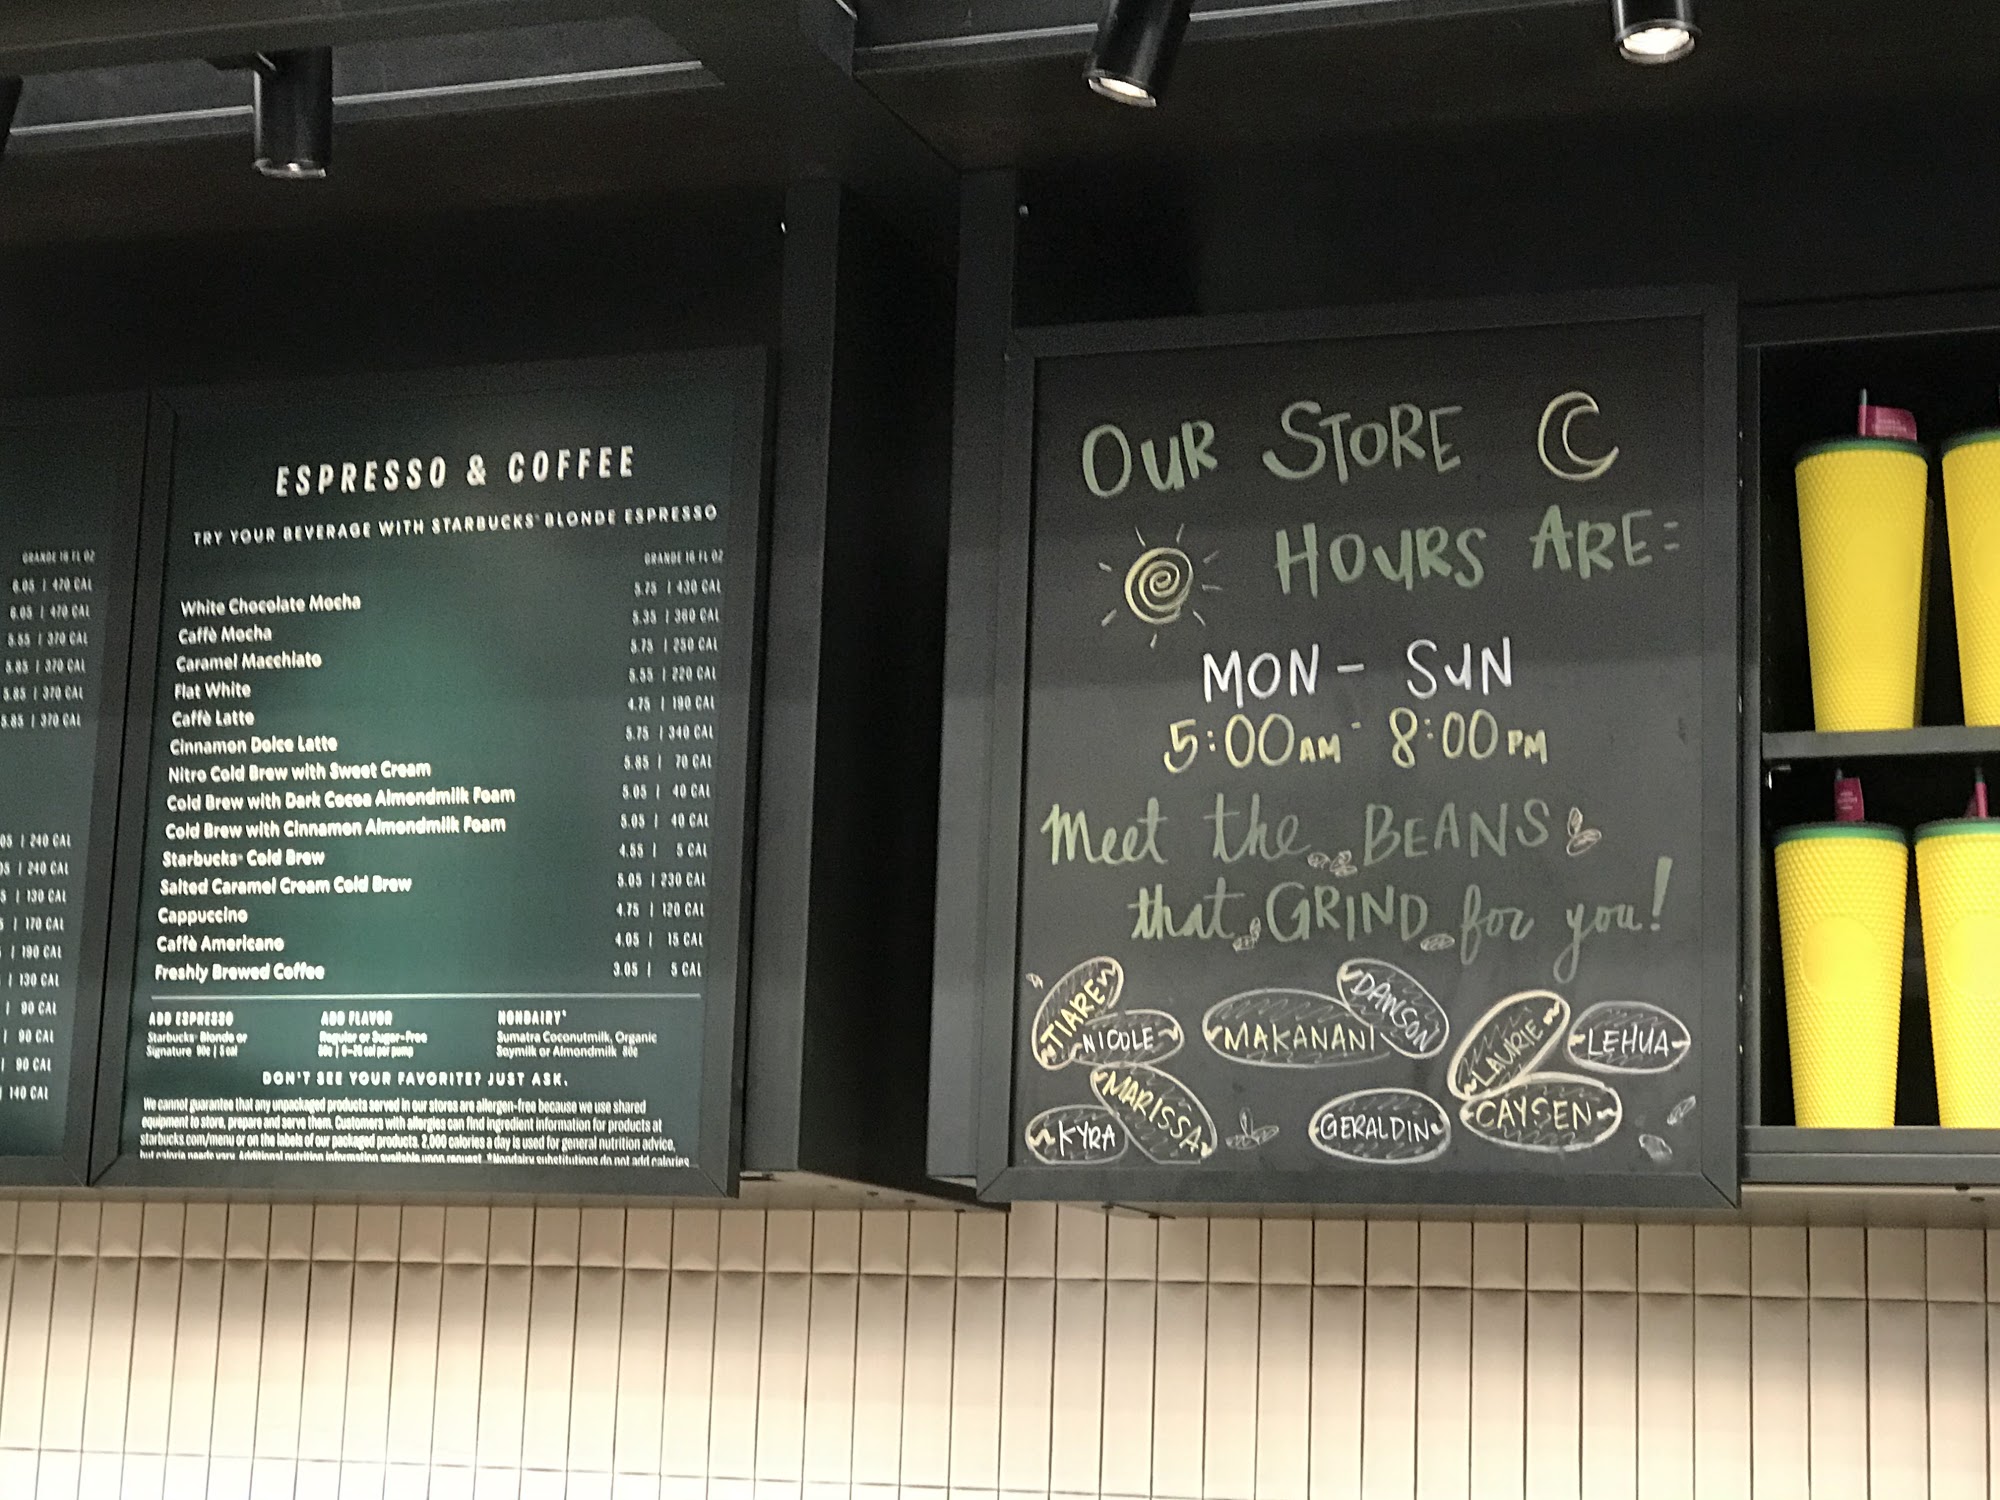 GRANDE 16 FL OZ
6.05 | 470 CAL
6.05 | 470 CAL
5.55 | 370 CAL
5.85 | 370 CAL
5.85 | 370 CAL
5.85 | 370 CAL
05 | 240 CAL
05 | 240 CAL
5 | 130 CAL
5 | 170 CAL
| 190 CAL
| 130 CAL
| 90 CAL
| 90 CAL
| 90 CAL
| 140 CAL
ESPRESSO & COFFEE
TRY YOUR BEVERAGE WITH STARBUCKS® BLONDE ESPRESSO
GRANDE 16 FL OZ
White Chocolate Mocha 5.75 | 430 CAL
Caffè Mocha 5.35 | 360 CAL
Caramel Macchiato 5.75 | 250 CAL
Flat White 5.55 | 220 CAL
Caffè Latte 4.75 | 190 CAL
Cinnamon Dolce Latte 5.75 | 340 CAL
Nitro Cold Brew with Sweet Cream 5.85 | 70 CAL
Cold Brew with Dark Cocoa Almondmilk Foam 5.05 | 40 CAL
Cold Brew with Cinnamon Almondmilk Foam 5.05 | 40 CAL
Starbucks® Cold Brew 4.55 | 5 CAL
Salted Caramel Cream Cold Brew 5.05 | 230 CAL
Cappuccino 4.75 | 120 CAL
Caffè Americano 4.05 | 15 CAL
Freshly Brewed Coffee 3.05 | 5 CAL
ADD ESPRESSO
Starbucks® Blonde or
Signature 90¢ | 5 cal
ADD FLAVOR
Regular or Sugar-Free
80¢ | 0–70 cal per pump
NONDAIRY*
Sumatra Coconutmilk, Organic
Soymilk or Almondmilk 80¢
DON'T SEE YOUR FAVORITE? JUST ASK.
We cannot guarantee that any unpackaged products served in our stores are allergen-free because we use shared
equipment to store, prepare and serve them. Customers with allergies can find ingredient information for products at
starbucks.com/menu or on the labels of our packaged products. 2,000 calories a day is used for general nutrition advice,
but calorie needs vary. Additional nutrition information available upon request. *Nondairy substitutions do not add calories
OUR STORE
HOURS ARE:
MON - SUN
5:00AM - 8:00PM
Meet the BEANS
that GRIND for you!
TIARE
NICOLE
MAKANANI
DAWSON
LAURIE
LEHUA
MARISSA
KYRA
GERALDIN
CAYSEN